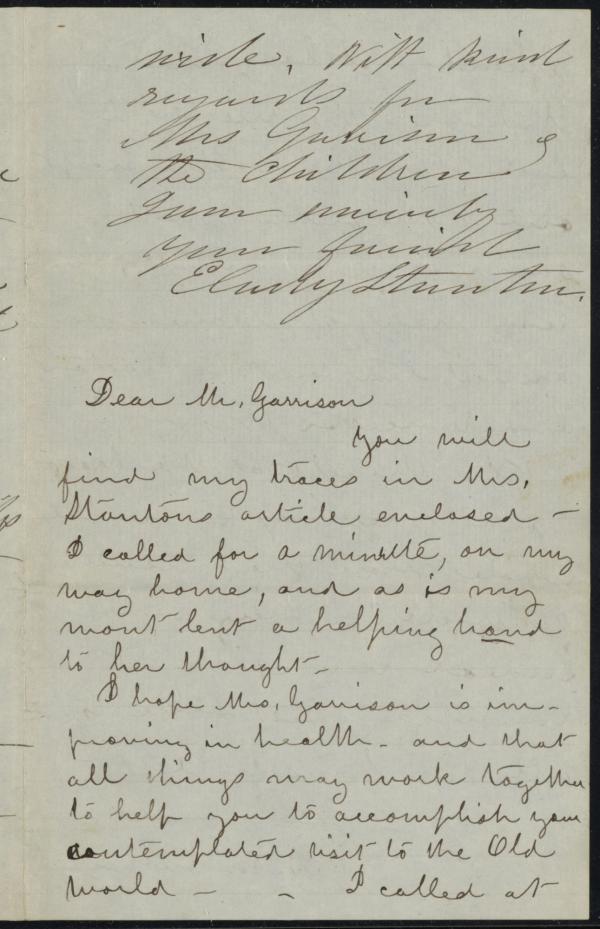 side. With kind
regards for
Mrs Garrison &
the children
I am sincerely
your friend
E Cady Stanton.
Dear Mr. Garrison
You will
find my traces in Mrs.
Stantons article enclosed –
I called for a minute, on my
way home, and as is my
wont lent a helping hand
to her thought –
I hope Mrs. Garrison is im-
proving in health – and that
all things may work together
to help you to accomplish your
contemplated visit to the Old
World – – I called at